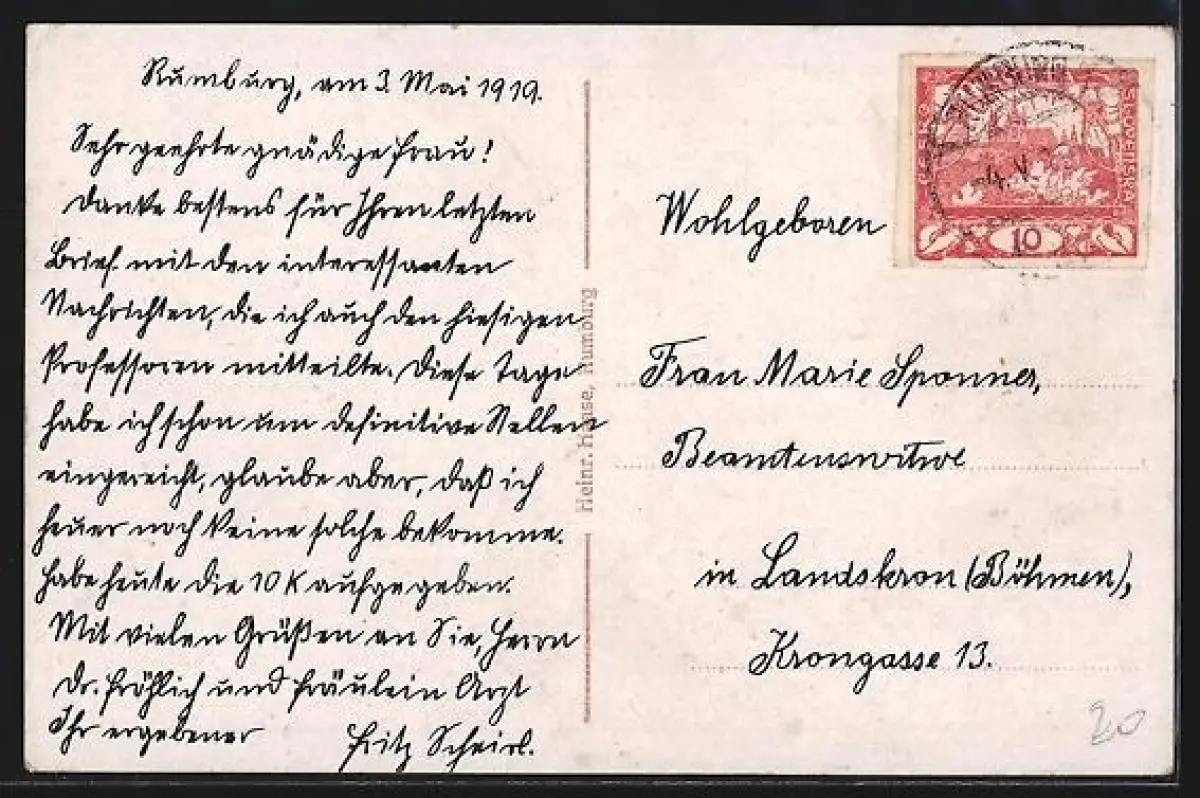 Rumburg, am 3. Mai 1919.
Sehr geehrte gnädige Frau!
Danke bestens für Ihren letzten
Brief mit den interessanten
Nachrichten, die ich auch den hiesigen
Professoren mitteilte. Diese Tage
habe ich schon um definitive Stellen
eingereicht, glaube aber, daß ich
heuer noch keine solche bekomme.
Habe heute die 10 K aufgegeben.
Mit vielen Grüßen an Sie, Herrn
Dr. Fröhlich und Fräulein Arzt
Ihr ergebener Fritz
Heinr. Hase, Rumburg
ČESKO-SLOVENSKÁ
10
4. V.
Wohlgeboren
Frau Marie Sponner,
Beamtenswitwe
in Landskron (Böhmen),
Krongasse 13.
20